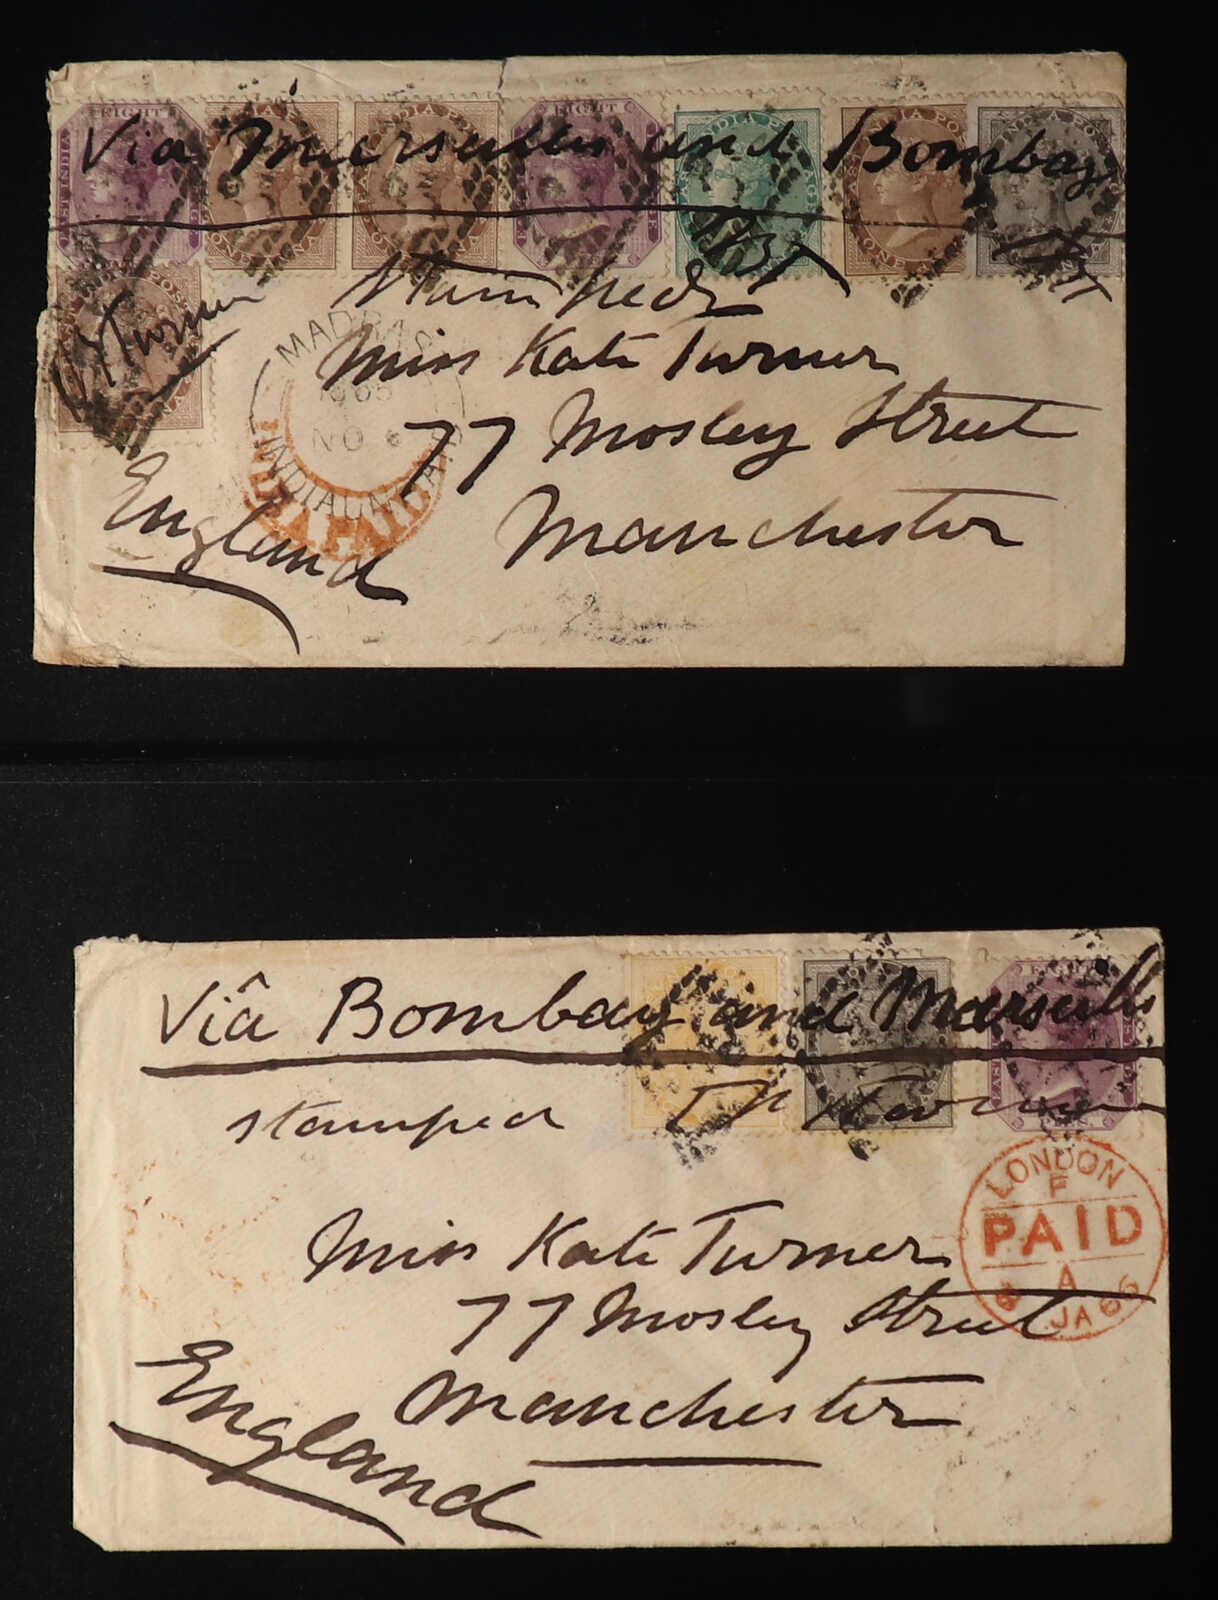 Via Marseilles and Bombay
Stamped
Miss Kate Turner
77 Mosley Street
Manchester
England
Turner
MADRAS
1865
NO
INDIA UNPAID
INDIA PAID
EIGHT
EAST INDIA
EIGHT
Viâ Bombay and Marseills
stamped
Miss Kate Turner
77 Mosley Street
Manchester
England
LONDON
F
PAID
A
JA 66